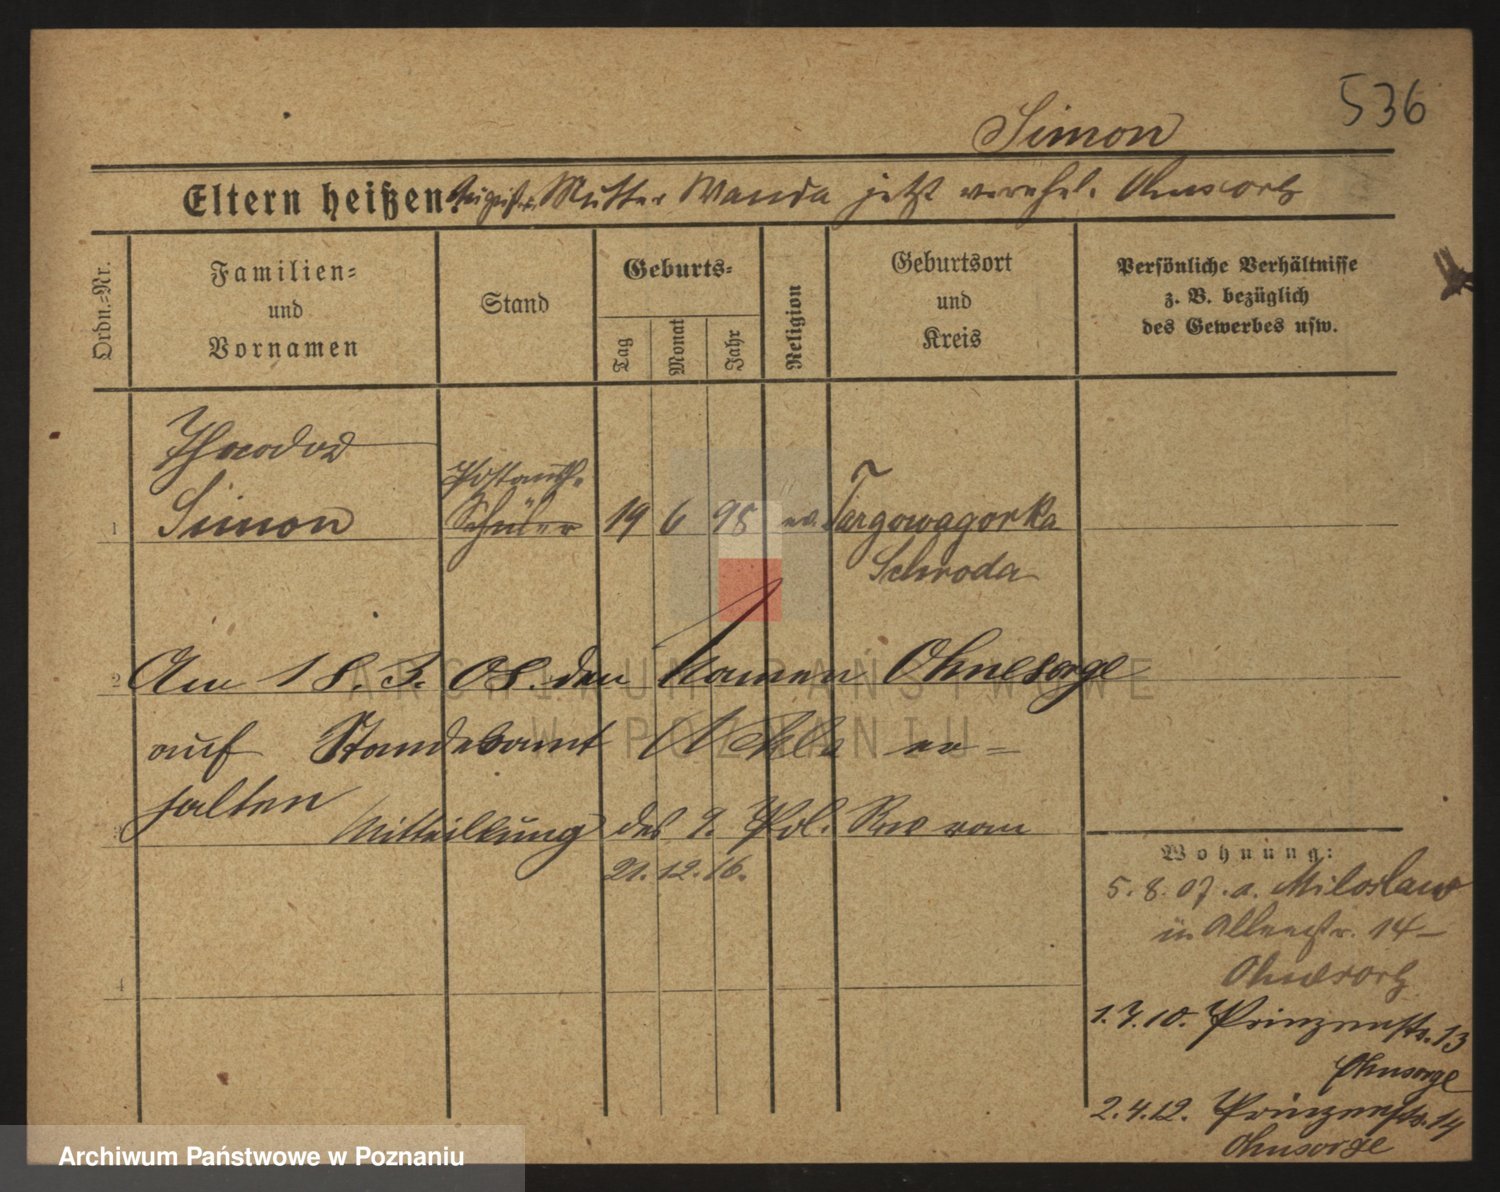 536
Simon
Eltern heißen: Mutter Wanda jetzt verehel. Ohnesorg
Ordn.-Nr.
Familien-
und
Vornamen
Stand
Geburts-
Tag
Monat
Jahr
Religion
Geburtsort
und
Kreis
Persönliche Verhältnisse
z. B. bezüglich
des Gewerbes usw.
Theodor
Postaush.
1 Simon Schüler 19 6 98 ev. Targowagorka
Schroda
2 Am 18. 3. 08. den Namen Ohnesorge
auf Standesamt er-
halten
3 Mitteilung des 9. Pol. Rev vom
21.12.16.
4
Wohnung:
5.8.07. a. Miloslaw
in 14
Ohnesorg
1.7.10. Prinzenstr. 13
Ohnsorge
2.4.12. Prinzenstr. 14
Ohnsorge
ARCHIWUM PAŃSTWOWE
W POZNANIU
Archiwum Państwowe w Poznaniu